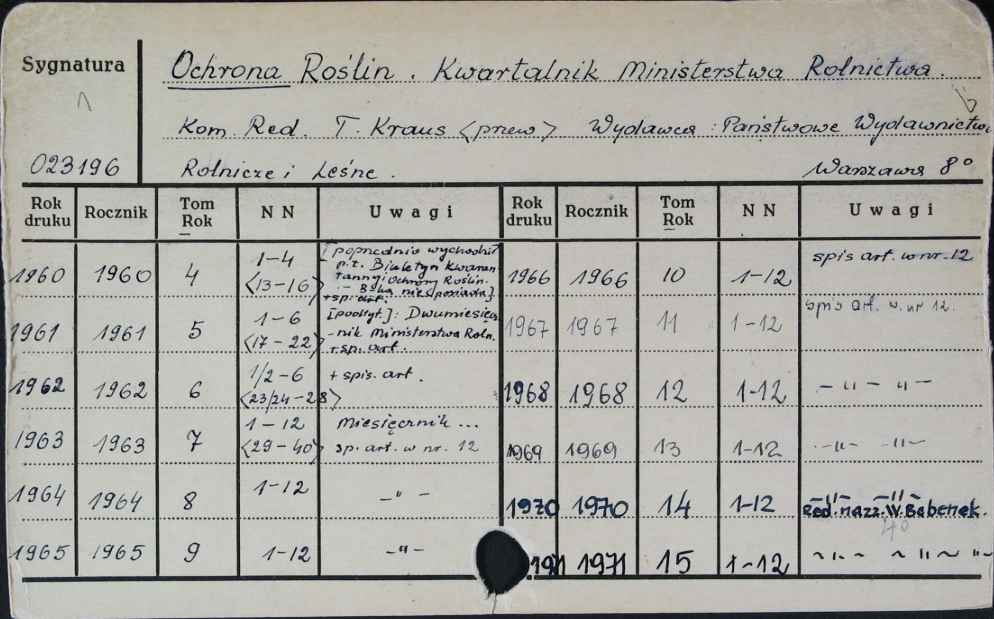 Sygnatura
Ochrona Roślin. Kwartalnik Ministerstwa Rolnictwa.
Kom. Red. T. Kraus <przew> Wydawca: Państwowe Wydawnictwo
023196 Rolnicze i Leśne. Warszawa 8°
Rok druku Rocznik Tom Rok NN Uwagi Rok druku Rocznik Tom Rok NN Uwagi
1960 1960 4 1-4 <13-16> [poprzednio wychodził p.t. Biuletyn Kwarantanny i Ochrony Roślin. - B-ka nie posiada] + sp. art. 1966 1966 10 1-12 spis art. w nr. 12
1961 1961 5 1-6 <17-22> [podtyt.]: Dwumiesięcznik Ministerstwa Roln. + sp. art. 1967 1967 11 1-12 spis art. w. nr 12.
1962 1962 6 1/2-6 <23/24-28> + spis. art. 1968 1968 12 1-12 -"- "-
1963 1963 7 1-12 <29-40> miesięcznik... sp. art. w nr. 12 1969 1969 13 1-12 -"- -"-
1964 1964 8 1-12 -"- 1970 1970 14 1-12 -"- -"- Red. nacz. W. Babenek.
1965 1965 9 1-12 -"- 1971 1971 15 1-12 -"- -"- "-